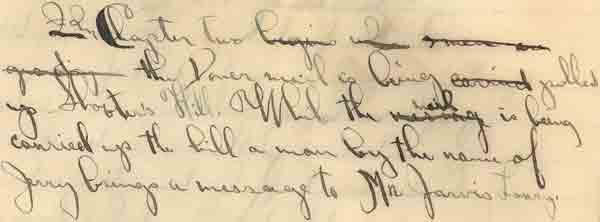 In Chapter two begins when a man on
greeting the Dover mail is being carried pulled
up Shooter's Hill. While the message mail is being
carried up the hill a man by the name of
Jerry brings a message to Mr Jarvis Lorry.